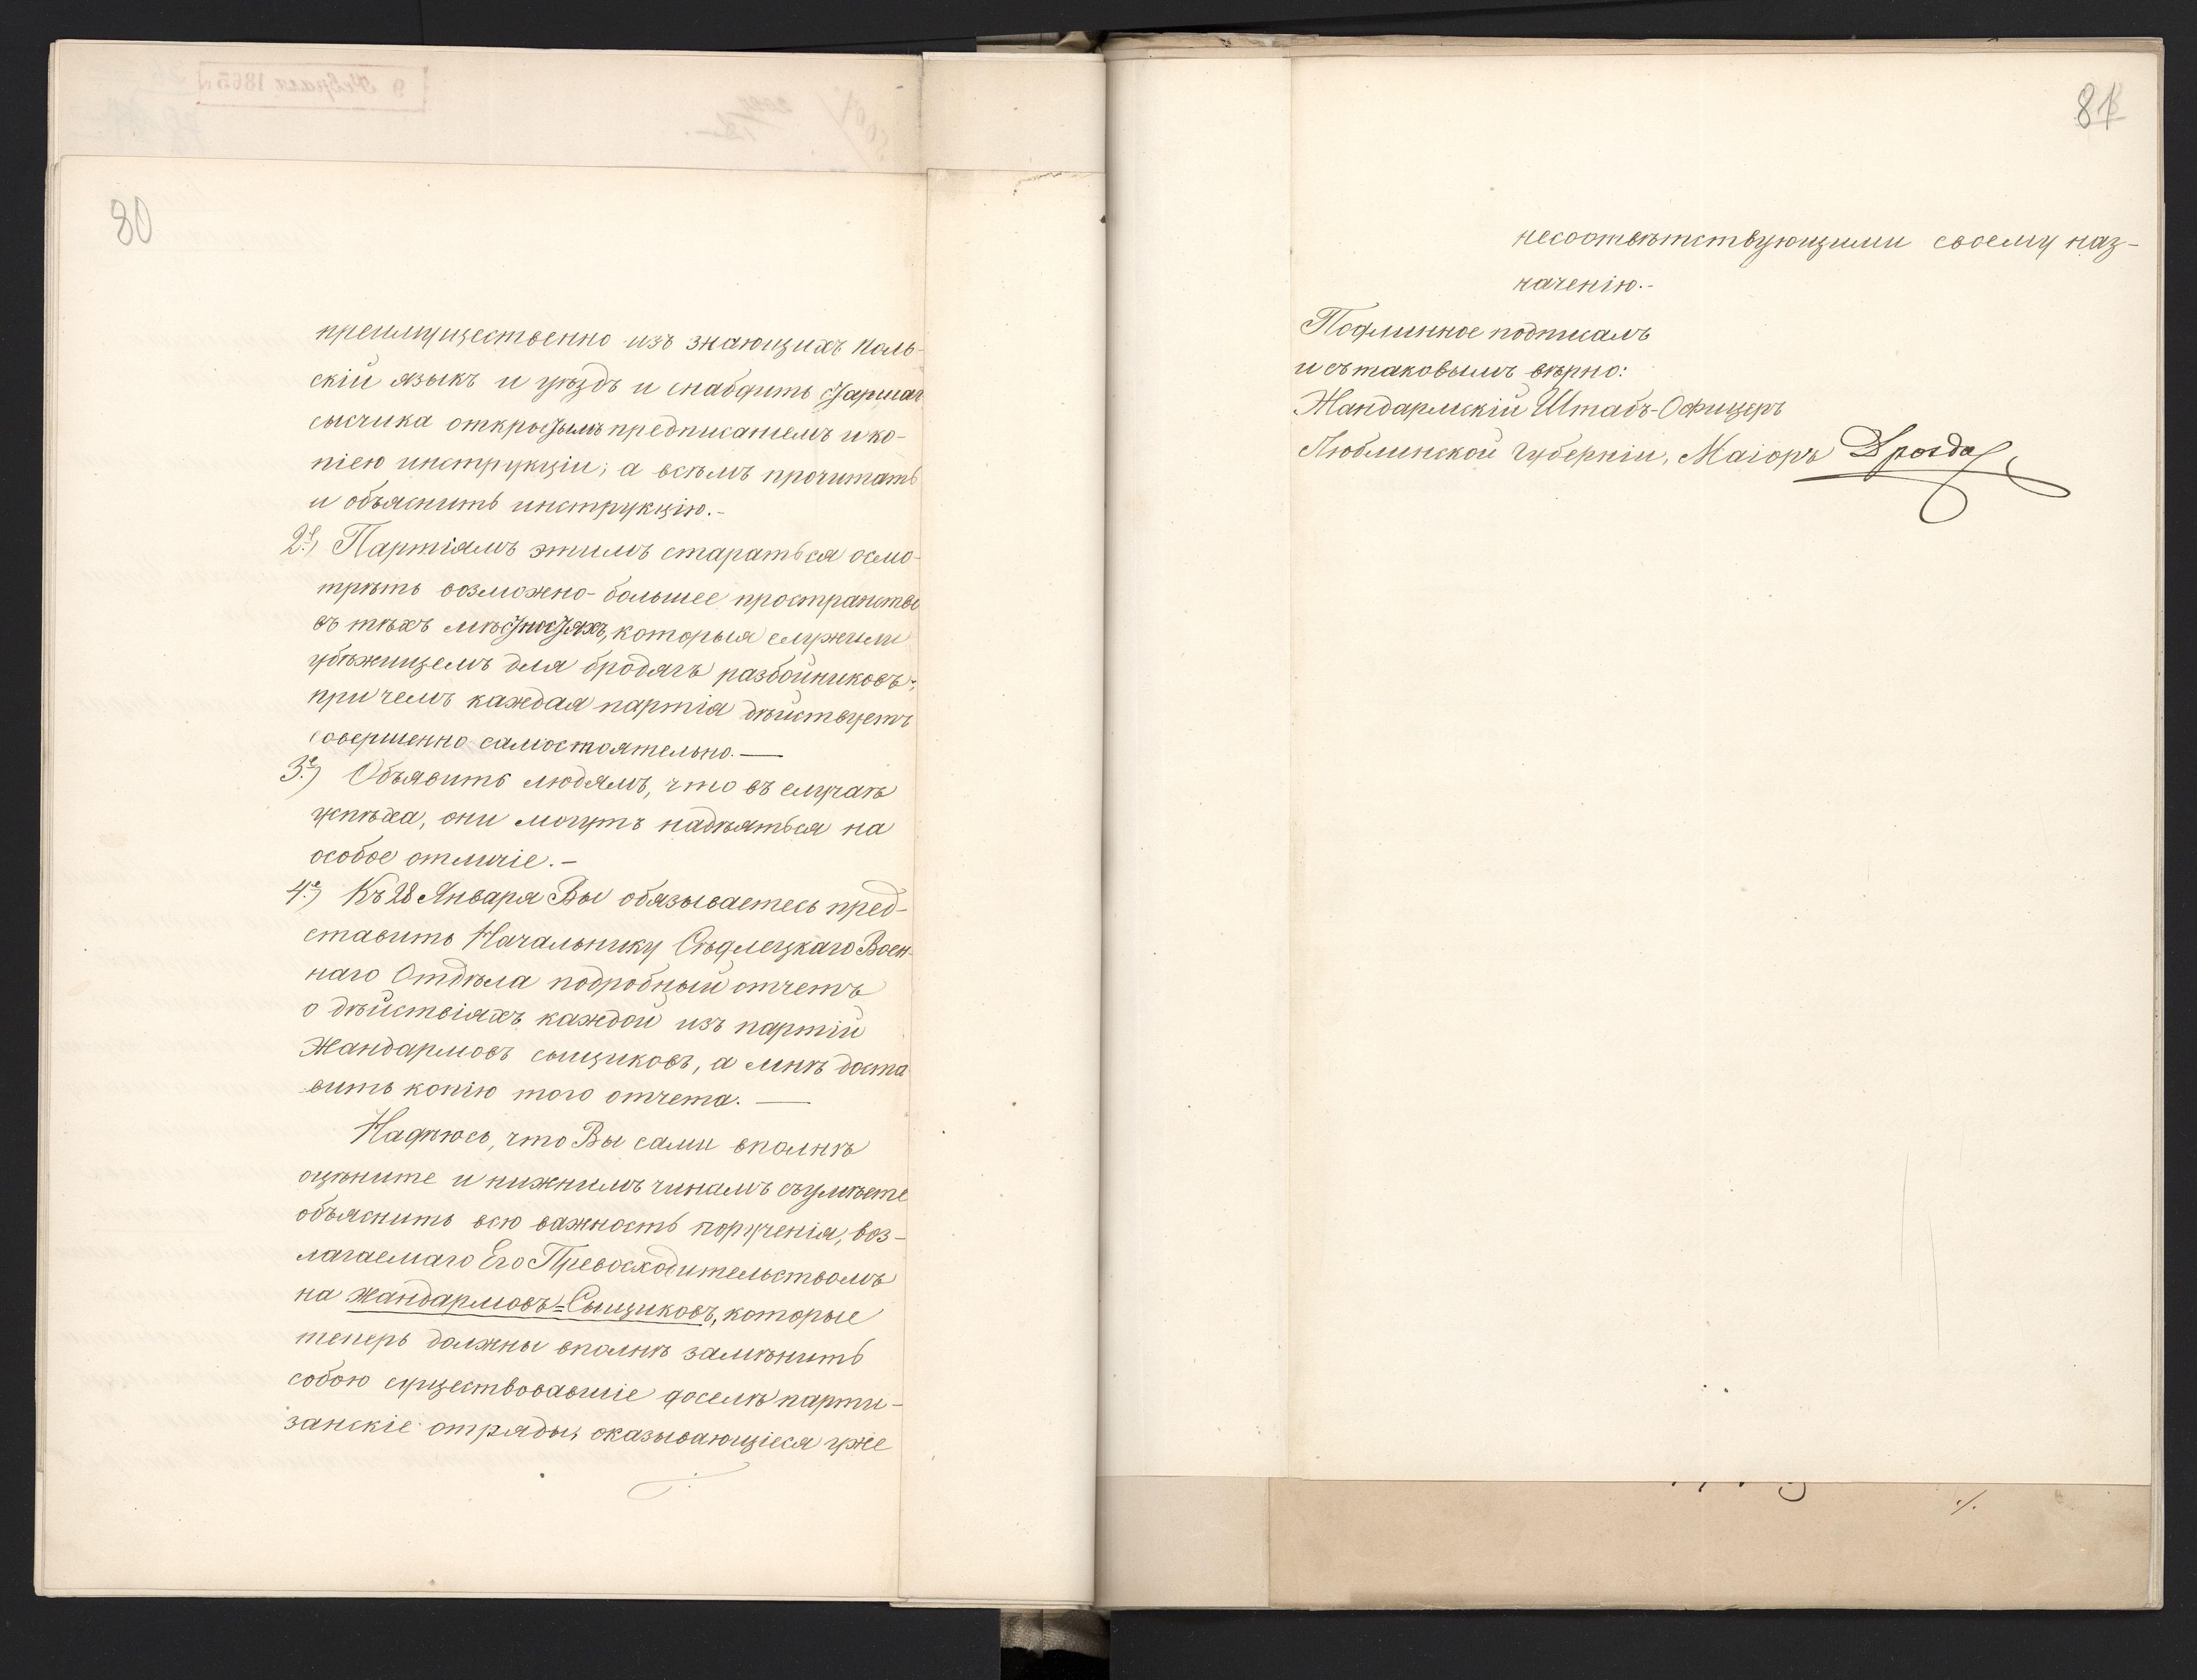 80
преимущественно изъ знающихъ поль-
скій языкъ и уѣздъ и снабдить старшаг
сысчика открытымъ предписаніемъ и ко-
піею инструкціи; а всѣмъ прочитать
и объяснить инструкцію.-
2е) Партіямъ этимъ стараться осмо-
трѣть возможно-большее пространство
въ тѣхъ мѣстностяхъ, которыя служили
убѣжищемъ для бродягъ разбойниковъ;
при чемъ каждая партія дѣйствуетъ
совершенно самостоятельно.—
3е) Объявить людямъ, что въ случаѣ
успѣха, они могутъ надѣяться на
особое отличіе.-
4е) Къ 28 Января Вы обязываетесь пред-
ставить Начальнику Сѣдлецкаго Воен-
наго Отдѣла подробный отчетъ
о дѣйствіяхъ каждой изъ партій
Жандармовъ сыщиковъ, а мнѣ доста
вить копію того отчета.—
Надѣюсь, что Вы сами вполнѣ
оцѣните и нижнимъ чинамъ съумѣете
объяснить всю важность порученія, воз-
лагаемаго Его Превосходительствомъ
на Жандармовъ-Сыщиковъ, которые
теперь должны вполнѣ замѣнить
собою существовавшіе доселѣ парти-
занскіе отряды, оказывающіеся уже
81
несоотвѣтствующими своему наз-
наченію.-
Подлинное подписалъ
и съ таковымъ вѣрно:
Жандармскій Штабъ-Офицеръ
Люблинской Губерніи, Маіоръ
9 Февраля 1865